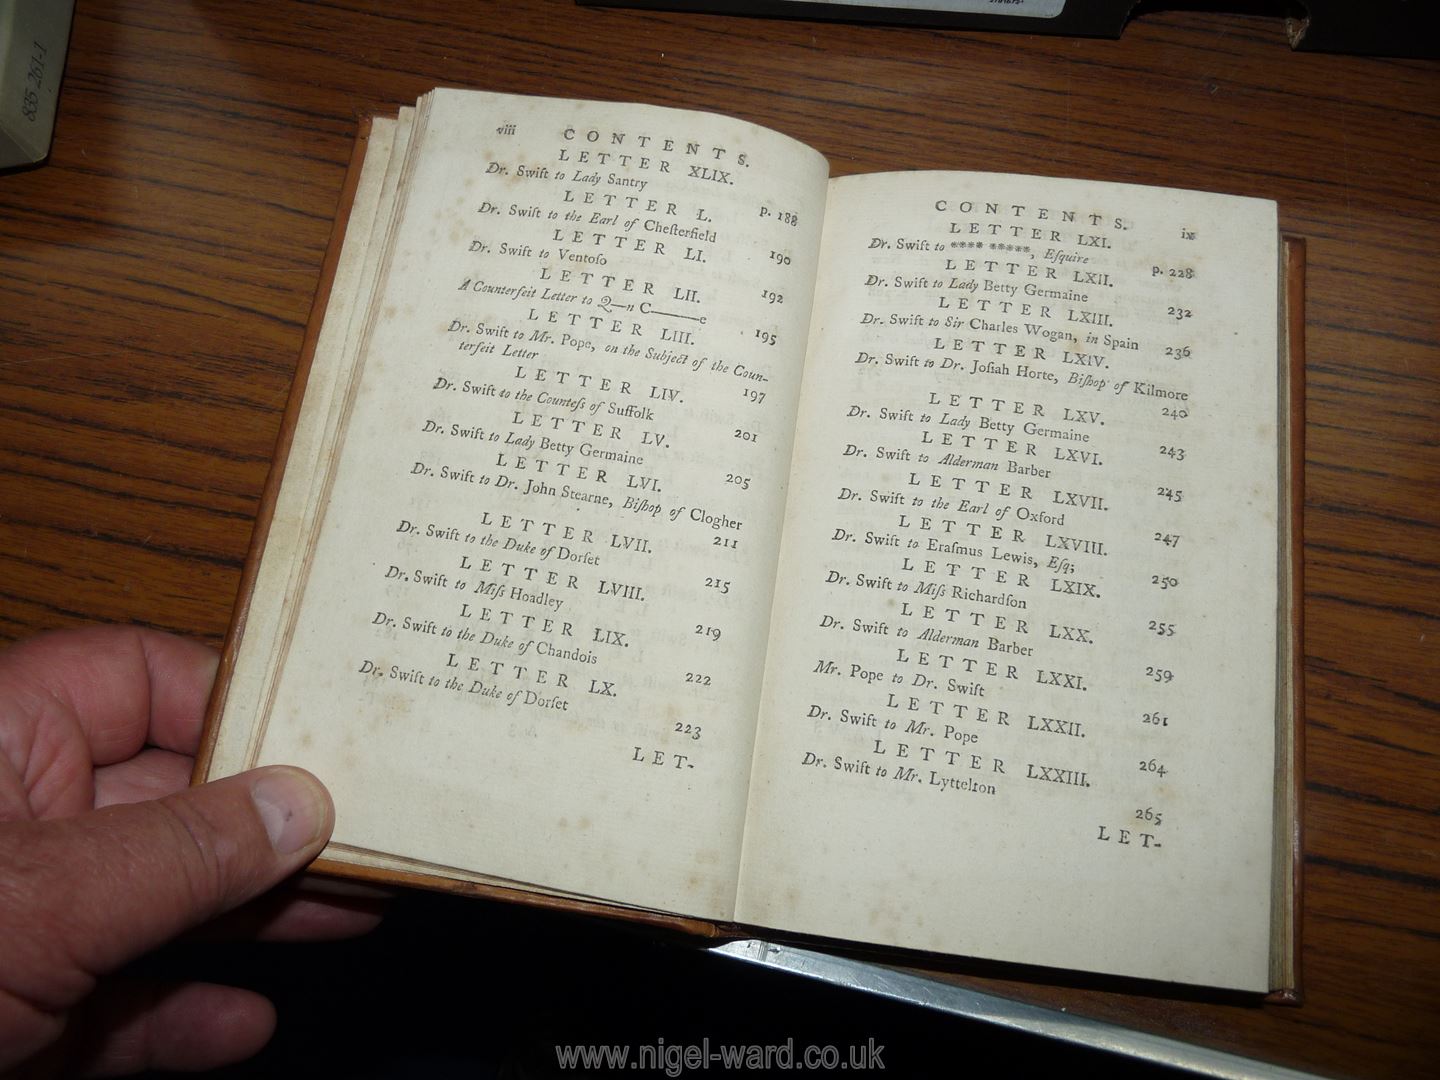 835 261-1
viii CONTENTS.
LETTER XLIX.
Dr. Swift to Lady Santry p. 188
LETTER L.
Dr. Swift to the Earl of Cheſterfield 190
LETTER LI.
Dr. Swift to Ventoſo 192
LETTER LII.
A Counterfeit Letter to Q—n C———e 195
LETTER LIII.
Dr. Swift to Mr. Pope, on the Subject of the Coun-
terfeit Letter 197
LETTER LIV.
Dr. Swift to the Counteſs of Suffolk 201
LETTER LV.
Dr. Swift to Lady Betty Germaine 205
LETTER LVI.
Dr. Swift to Dr. John Stearne, Biſhop of Clogher
211
LETTER LVII.
Dr. Swift to the Duke of Dorſet 215
LETTER LVIII.
Dr. Swift to Miſs Hoadley 219
LETTER LIX.
Dr. Swift to the Duke of Chandois 222
LETTER LX.
Dr. Swift to the Duke of Dorſet 223
LET-
CONTENTS. ix
LETTER LXI.
Dr. Swift to **** *****, Eſquire p. 228
LETTER LXII.
Dr. Swift to Lady Betty Germaine 232
LETTER LXIII.
Dr. Swift to Sir Charles Wogan, in Spain 236
LETTER LXIV.
Dr. Swift to Dr. Joſiah Horte, Biſhop of Kilmore
240
LETTER LXV.
Dr. Swift to Lady Betty Germaine 243
LETTER LXVI.
Dr. Swift to Alderman Barber 245
LETTER LXVII.
Dr. Swift to the Earl of Oxford 247
LETTER LXVIII.
Dr. Swift to Eraſmus Lewis, Eſq; 250
LETTER LXIX.
Dr. Swift to Miſs Richardſon 255
LETTER LXX.
Dr. Swift to Alderman Barber 259
LETTER LXXI.
Mr. Pope to Dr. Swift 261
LETTER LXXII.
Dr. Swift to Mr. Pope 264
LETTER LXXIII.
Dr. Swift to Mr. Lyttelton 265
LET-
www.nigel-ward.co.uk